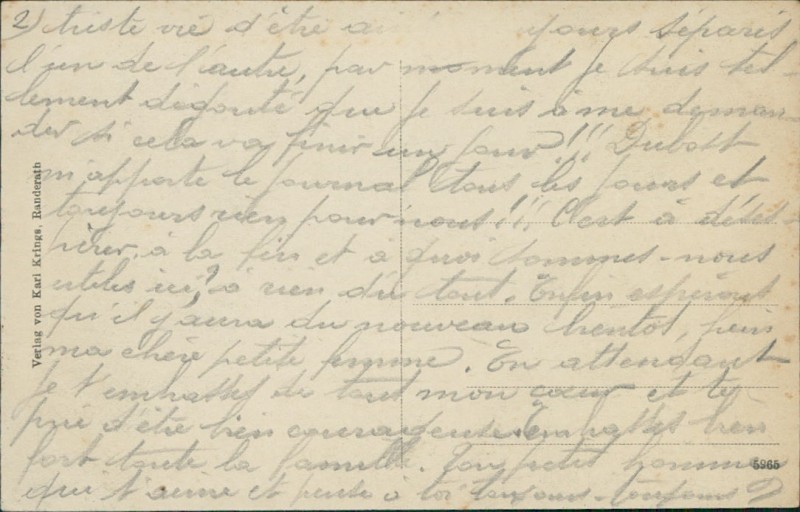 2) triste vie d'être ainsi toujours séparés
l'un de l'autre, par moment je suis tel-
lement dégouté que je suis à me deman-
der si cela va finir un jour!!! Dubost
m'apporte le journal tous les jours et
toujours rien pour nous!!! C'est à déses-
pérer, à la fin et à quoi sommes-nous
utiles ici? à rien du tout. Enfin espérons
qu'il y aura du nouveau bientôt,
ma chère petite femme. En attendant
je t'embrasse de tout mon cœur et te
prie d'être bien courageuse. Embrasses bien
fort toute la famille. Ton petit homme
qui t'aime et pense à toi toujours-toujours
Verlag von Karl Krings, Randerath
5965